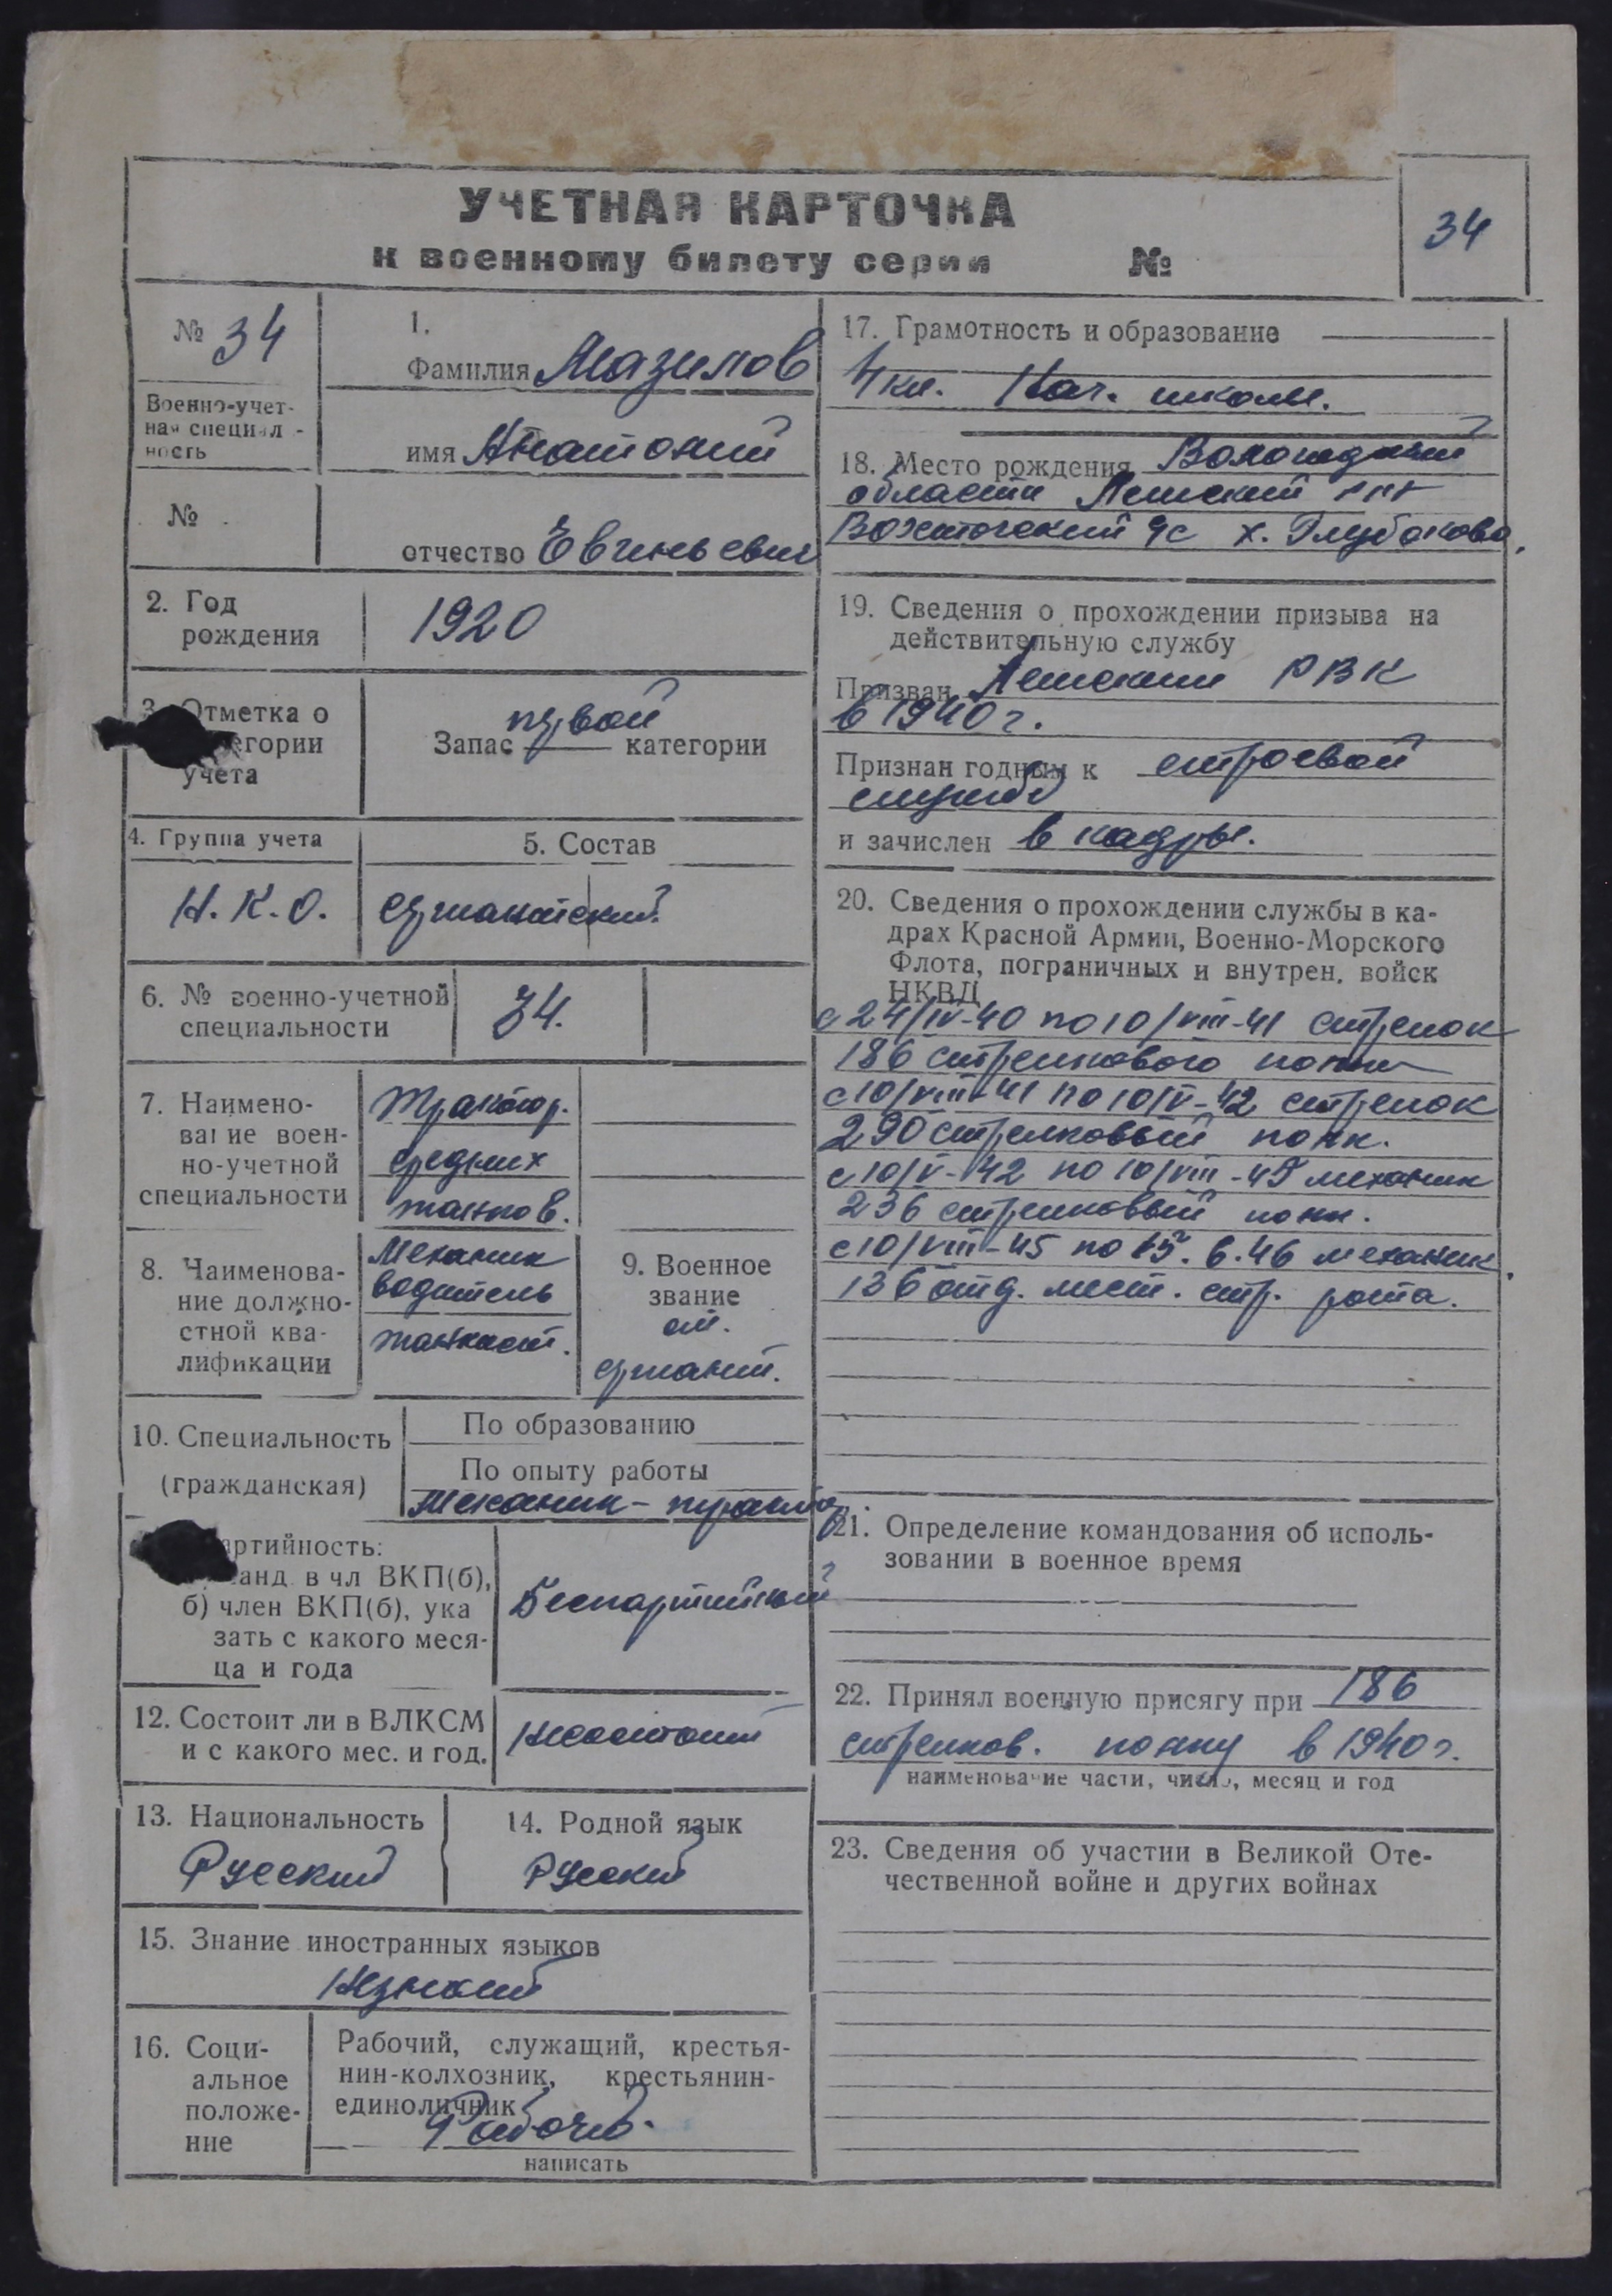 УЧЕТНАЯ КАРТОЧКА
к военному билету серии №
34
№ 34
Военно-учет-
ная специал-
ность
№
1.
Фамилия Мазилов
имя Анатолий
отчество Евгеньевич
2. Год
рождения
1920
3. Отметка о
егории
учета
Запас первой категории
4. Группа учета
Н. К. О.
5. Состав
сержантский.
6. № военно-учетной
специальности
34.
7. Наимено-
вание воен-
но-учетной
специальности
Трактор.
средних
танков.
8. Наименова-
ние должно-
стной ква-
лификации
Механик
водитель
танкист.
9. Военное
звание
ст.
сержант.
10. Специальность
(гражданская)
По образованию
По опыту работы
Механик-трактор
артийность:
канд. в чл ВКП(б),
б) член ВКП(б), ука
зать с какого меся-
ца и года
Беспартийный
12. Состоит ли в ВЛКСМ
и с какого мес. и год.
Несостоит
13. Национальность
Русский
14. Родной язык
Русский
15. Знание иностранных языков
Незнает
16. Соци-
альное
положе-
ние
Рабочий, служащий, крестья-
нин-колхозник, крестьянин-
единоличник
Рабочий.
написать
17. Грамотность и образование
4 кл. Нач. школы.
18. Место рождения Вологодской
области Лежский
с/с х. Глубоково.
19. Сведения о прохождении призыва на
действительную службу
Призван Лежским РВК
в 1940 г.
Признан годным к строевой
службе
и зачислен в кадры.
20. Сведения о прохождении службы в ка-
драх Красной Армии, Военно-Морского
Флота, пограничных и внутрен. войск
НКВД
с 24/IV-40 по 10/VIII-41 стрелок
186 стрелкового полка
с 10/VIII-41 по 10/V-42 стрелок
290 стрелковый полк.
с 10/V-42 по 10/VIII-45 механик
236 стрелковый полк.
с 10/VIII-45 по 15.6.46 механик.
136 отд. мест. стр. рота.
21. Определение командования об исполь-
зовании в военное время
22. Принял военную присягу при 186
стрелков. полку в 1940 г.
наименование части, число, месяц и год
23. Сведения об участии в Великой Оте-
чественной войне и других войнах